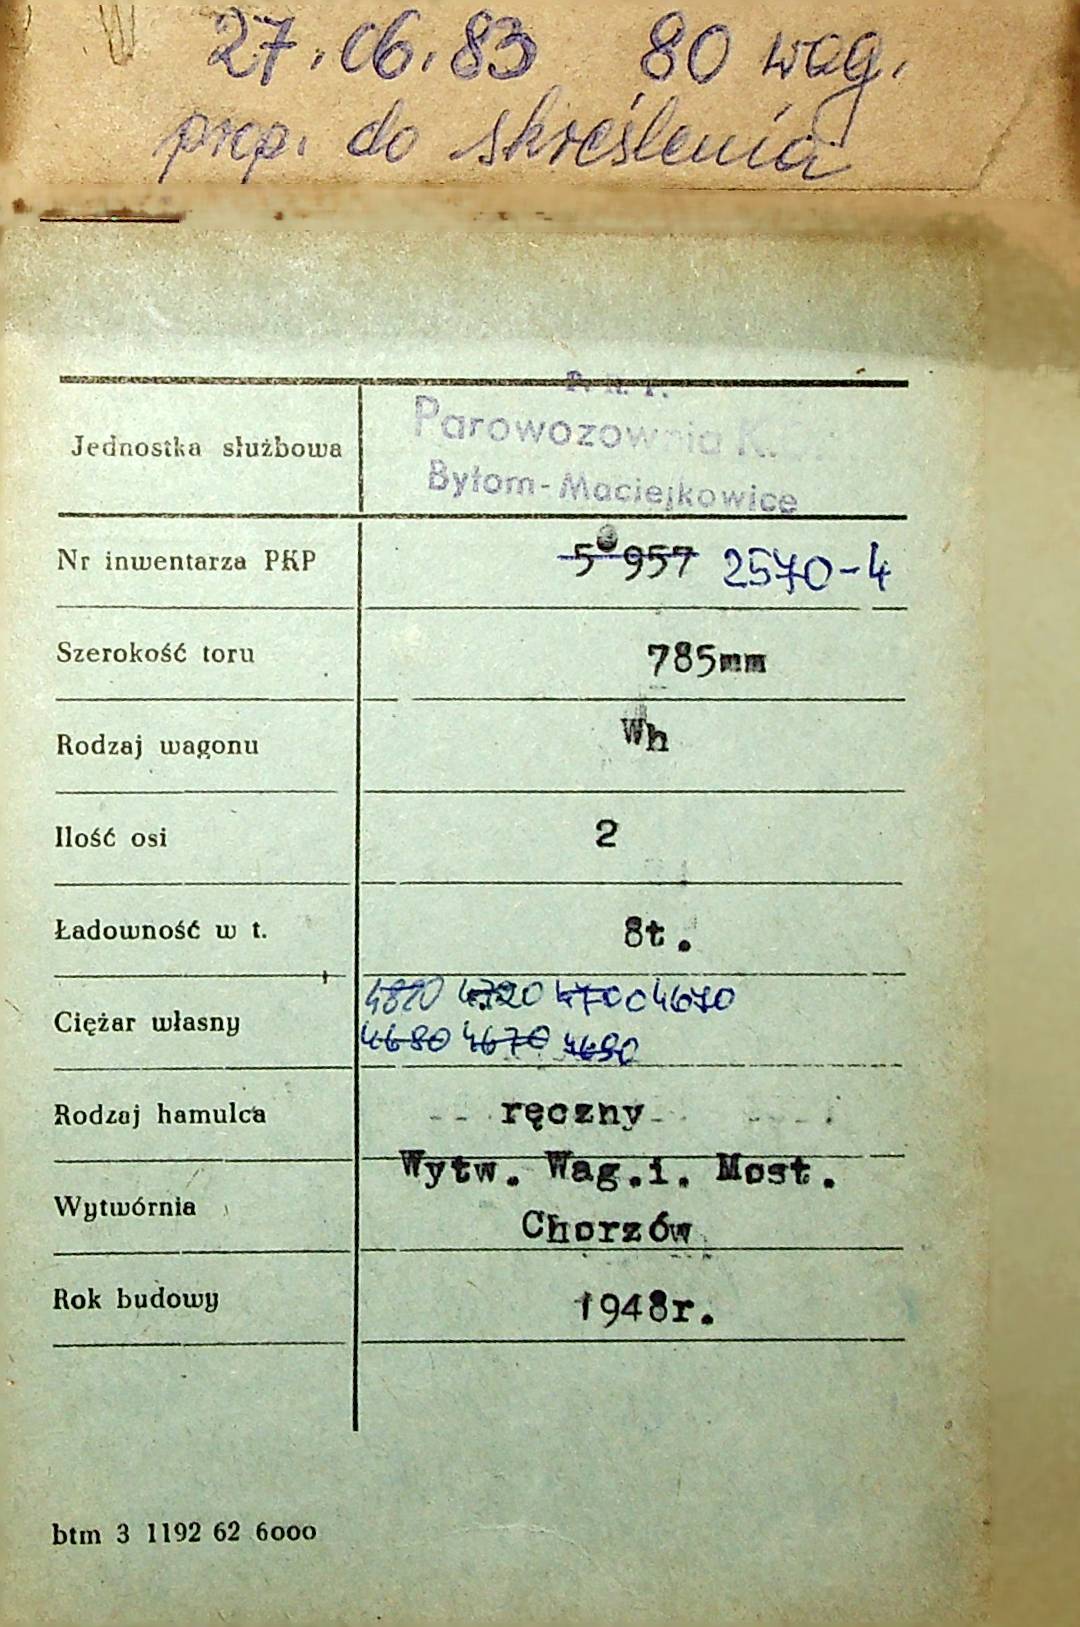 27.06.83 80 wag.
prop. do skreślenia
Jednostka służbowa
Parowozownia
Bytom-Maciejkowice
Nr inwentarza PKP 5 957 2570-4
Szerokość toru 785mm
Rodzaj wagonu Wh
Ilość osi 2
Ładowność w t. 8t.
Ciężar własny 4810 4720 4700 4670
4680 4670 4690
Rodzaj hamulca ręczny
Wytwórnia Wytw. Wag.i. Most.
Chorzów
Rok budowy 1948r.
btm 3 1192 62 6000